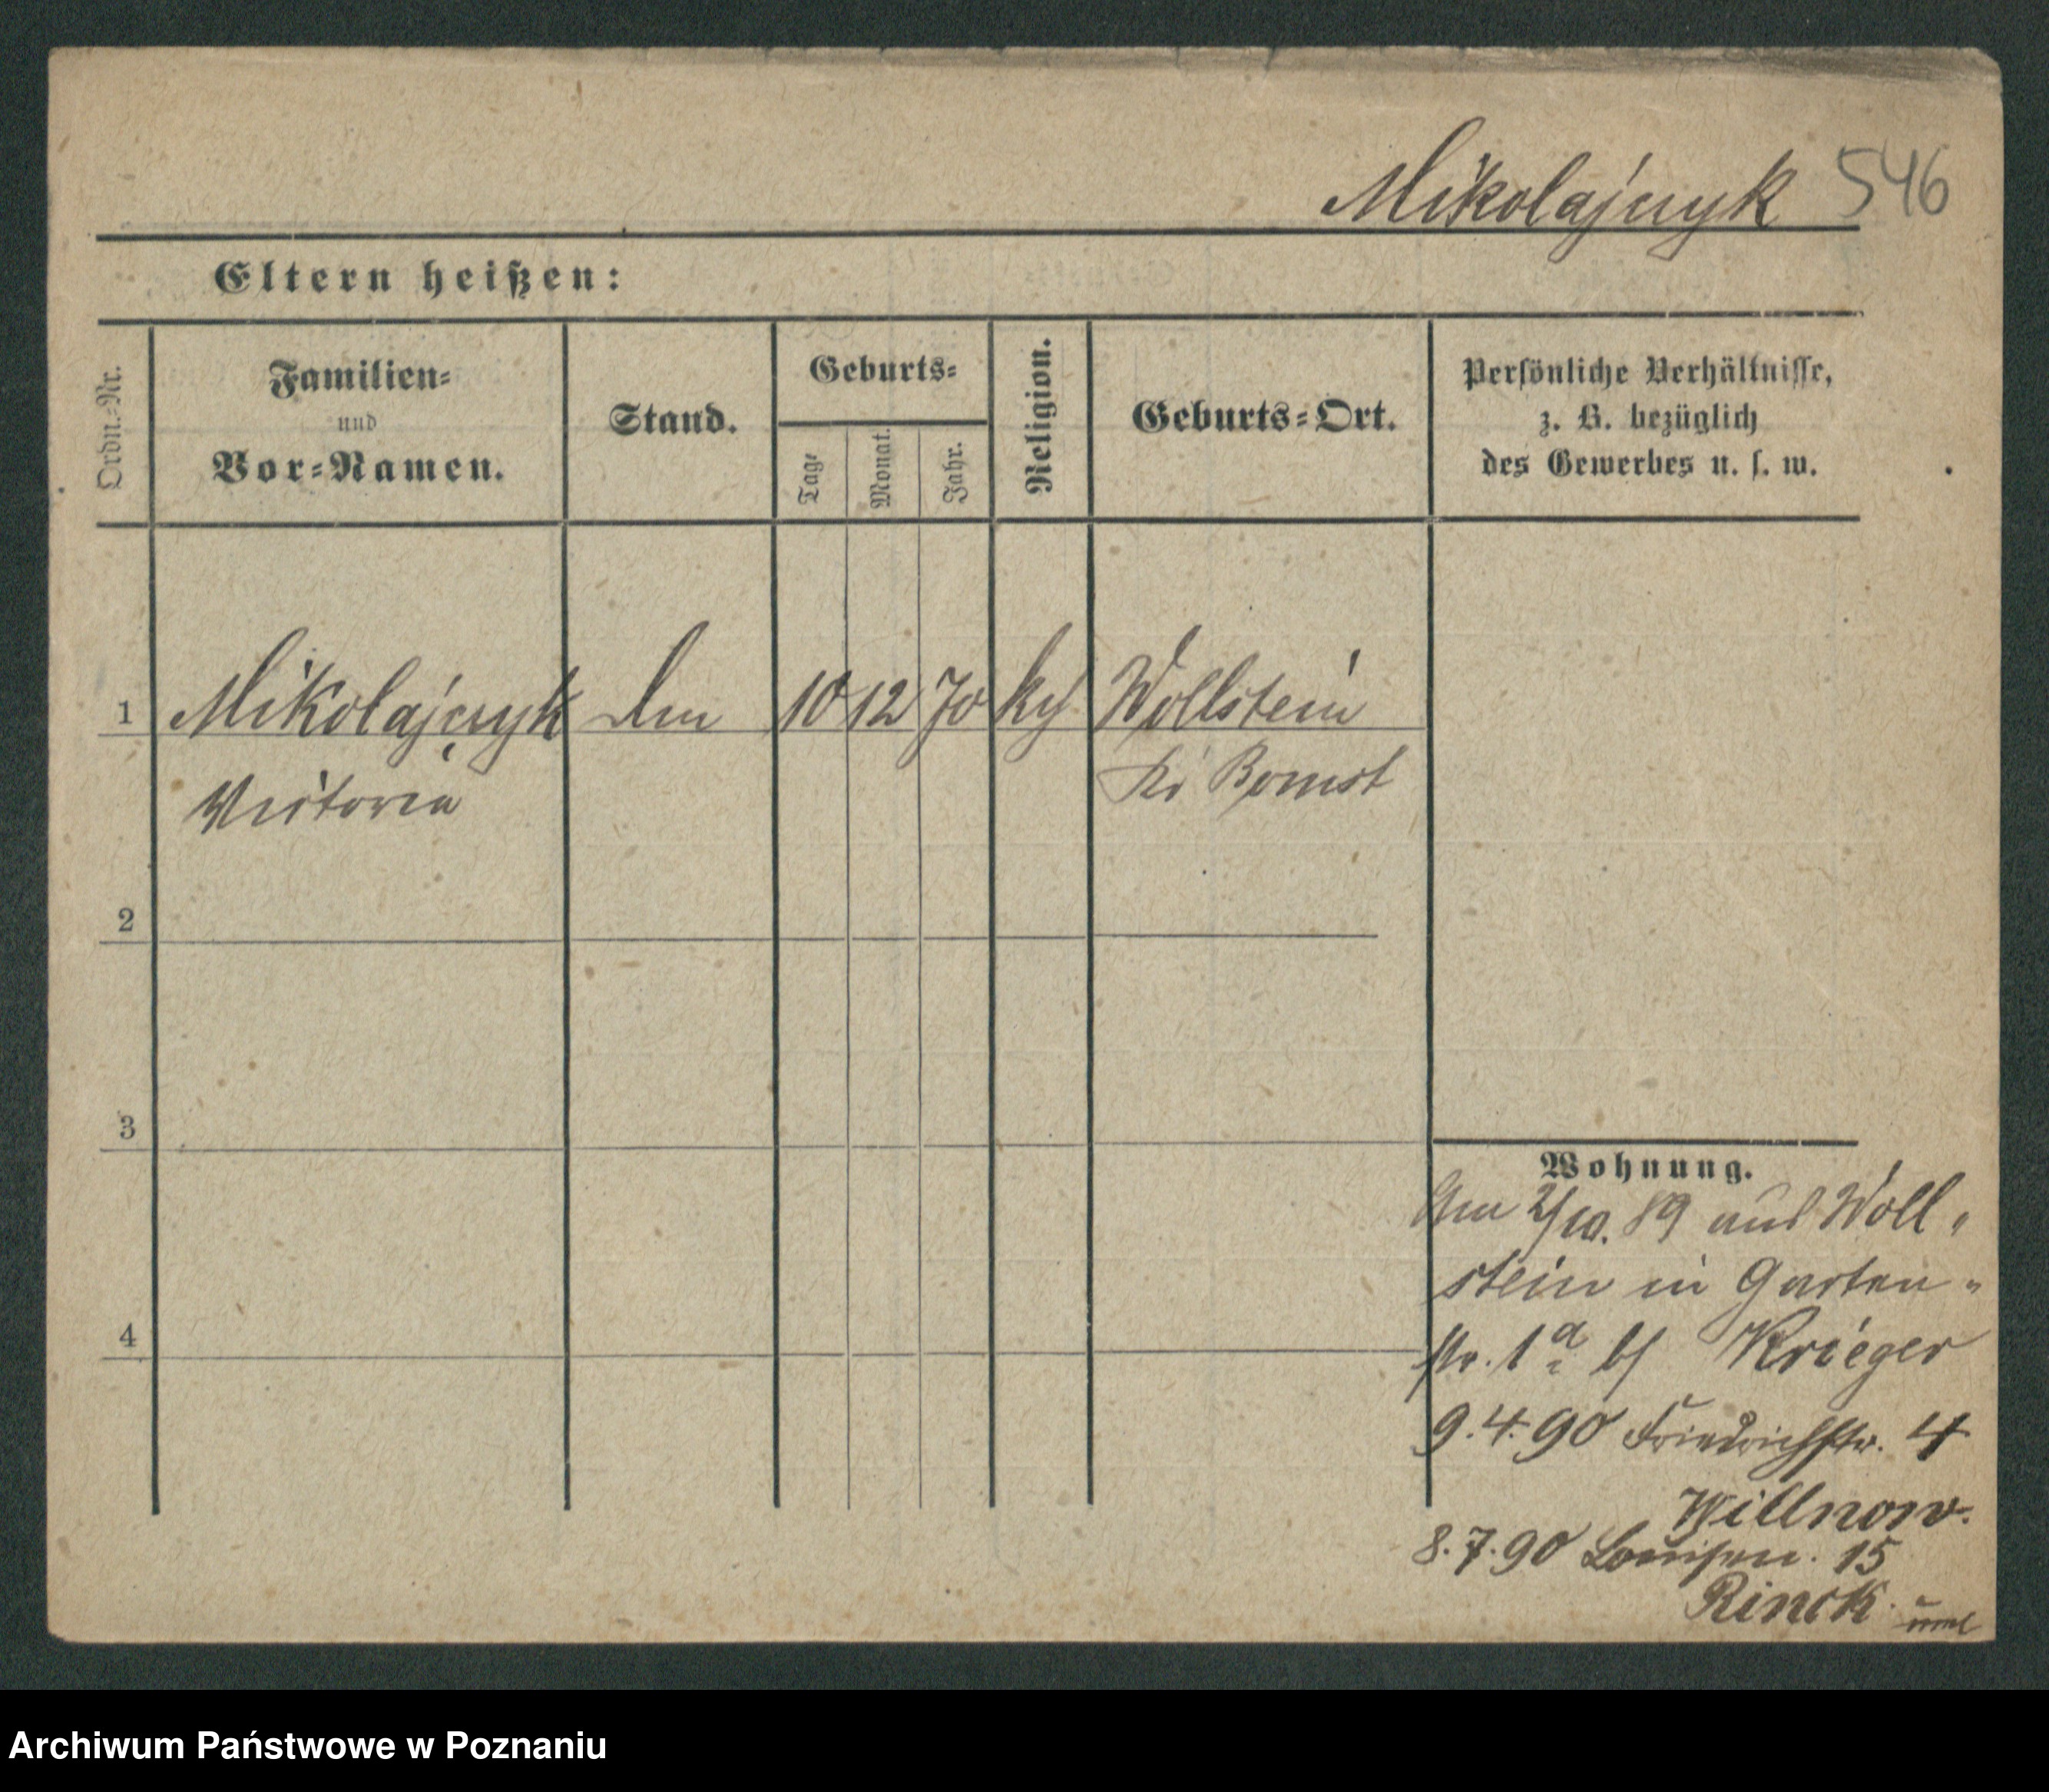 Mikolajczyk 546
Eltern heißen:
Ordn.-Nr.
Familien-
und
Vor-Namen.
Stand.
Geburts-
Tag.
Monat.
Jahr.
Religion.
Geburts-Ort.
Persönliche Verhältnisse,
z. B. bezüglich
des Gewerbes u. s. w.
1 Mikolajczyk 10 12 70 Wollstein
Victoria Kr Bomst
2
3
4
Wohnung.
Am 2/10. 89 aus Woll-
stein in Garten-
str. 1a bei Krieger
9.4.90 Friedrichstr. 4
Willnow.
8.7.90 Louisen. 15
Rinck
Archiwum Państwowe w Poznaniu